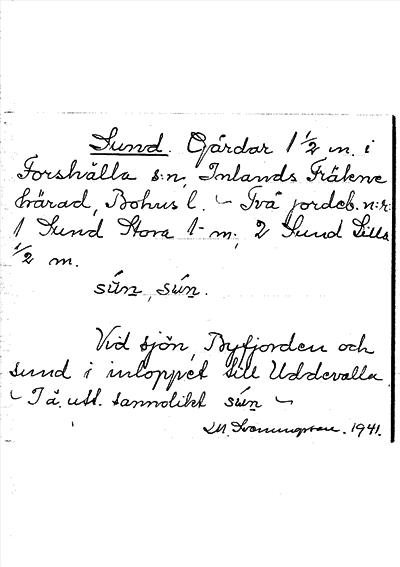 Sund. Gårdar 1 1/2 m. i
Forshälla s:n, Inlands Fräkne
härad, Bohus l. ~ Två jordeb.n:r:
1 Sund Stora 1- m; 2 Sund Lilla
1/2 m.
sún, sún.
Vid sjön, Byfjorden och
sund i inloppet till Uddevalla
~ I ä. utt. sannolikt sún ~
1941.